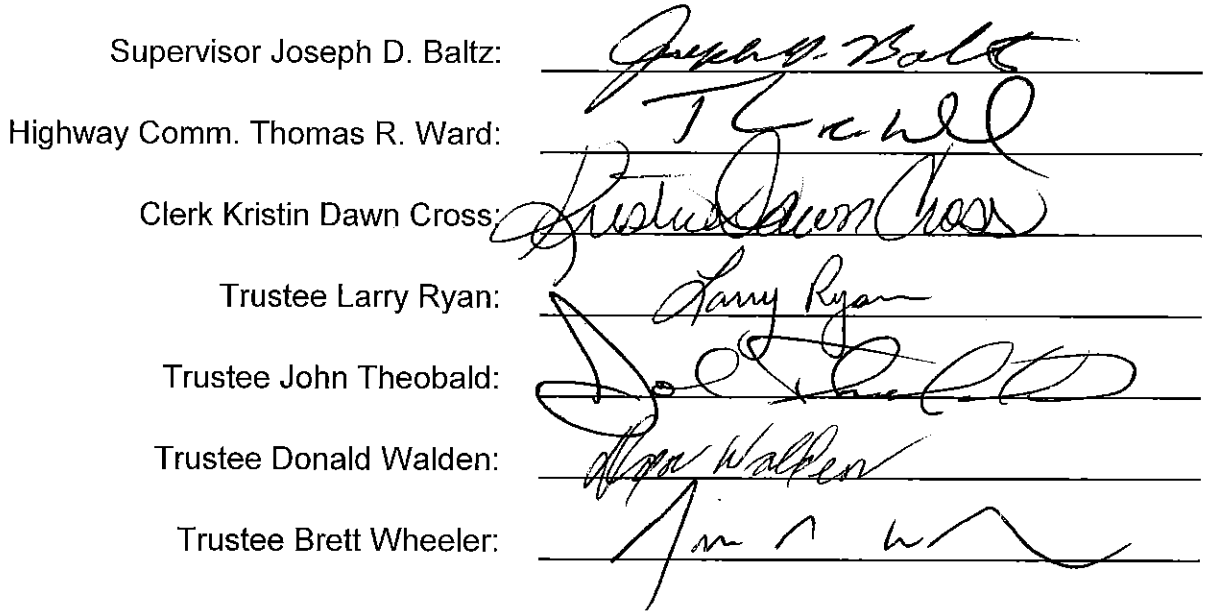 Supervisor Joseph D. Baltz: Joseph D. Baltz
Highway Comm. Thomas R. Ward:
Clerk Kristin Dawn Cross: Kristin Dawn Cross
Trustee Larry Ryan: Larry Ryan
Trustee John Theobald:
Trustee Donald Walden: Don Walden
Trustee Brett Wheeler: